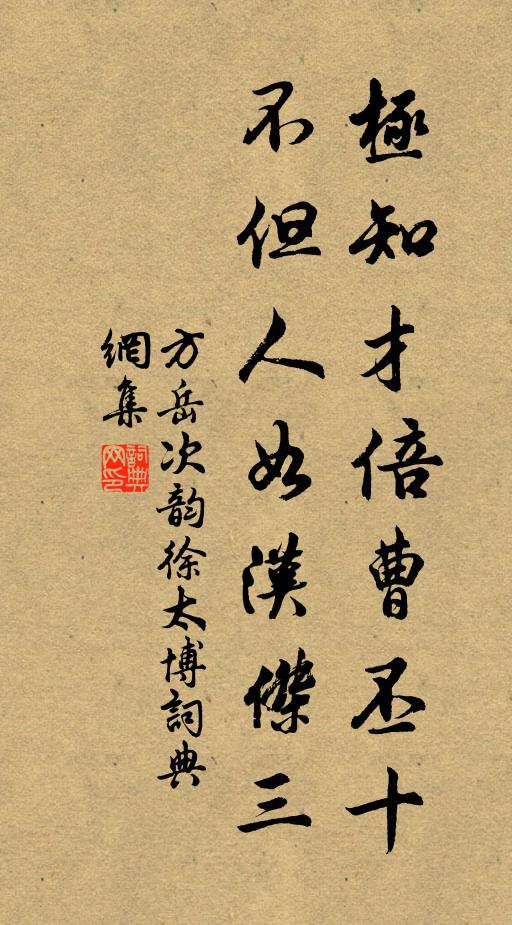 極知才倍曹丕十
不但人如漢傑三
方岳次韵徐太博詞典
網集
詞典
网印